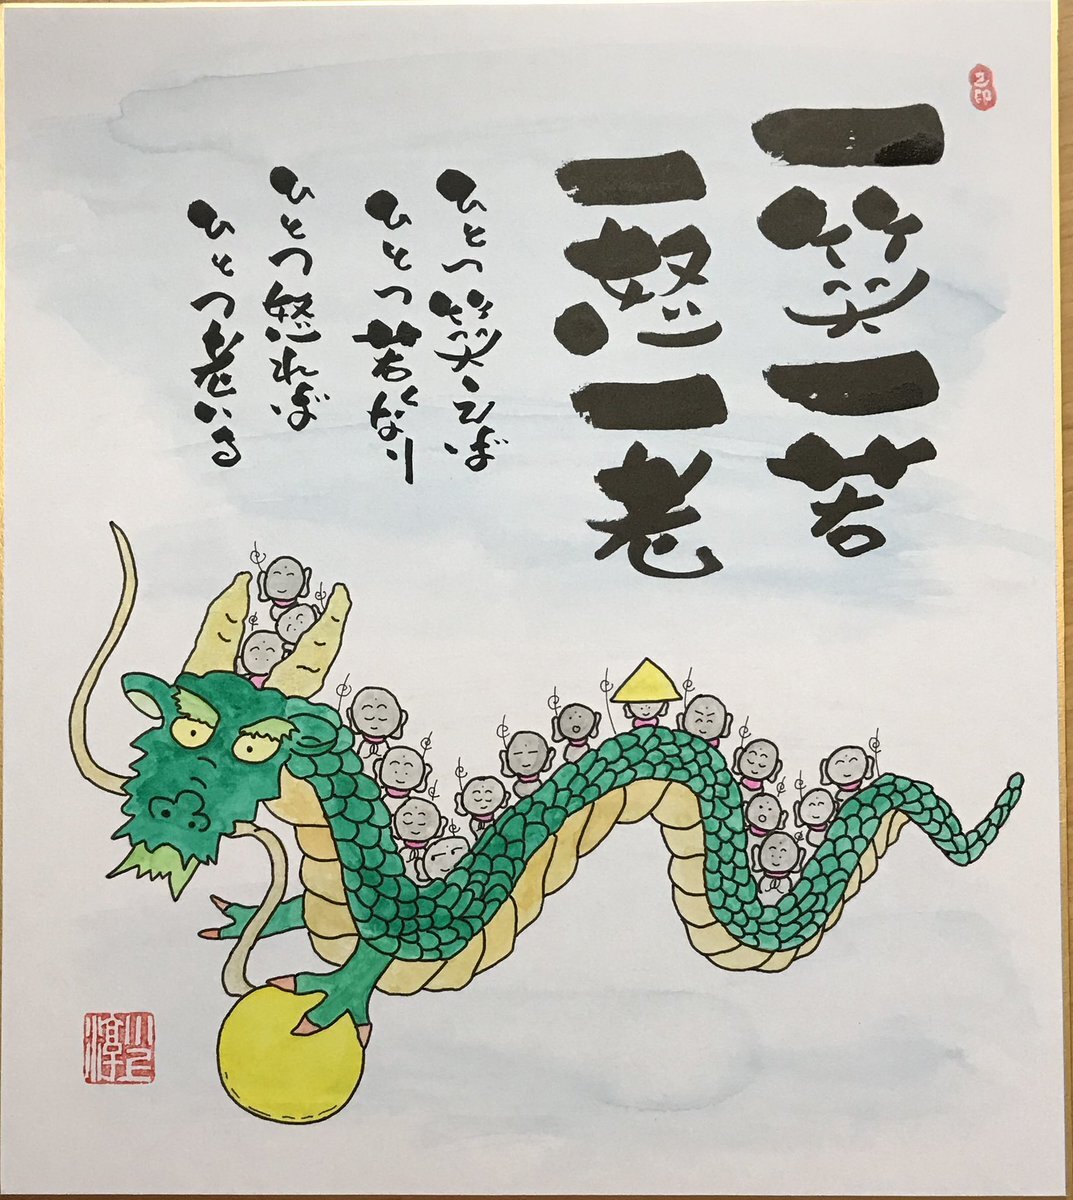 一笑一若
一怒一老
ひとつ笑えば
ひとつ若くなり
ひとつ怒れば
ひとつ老いる